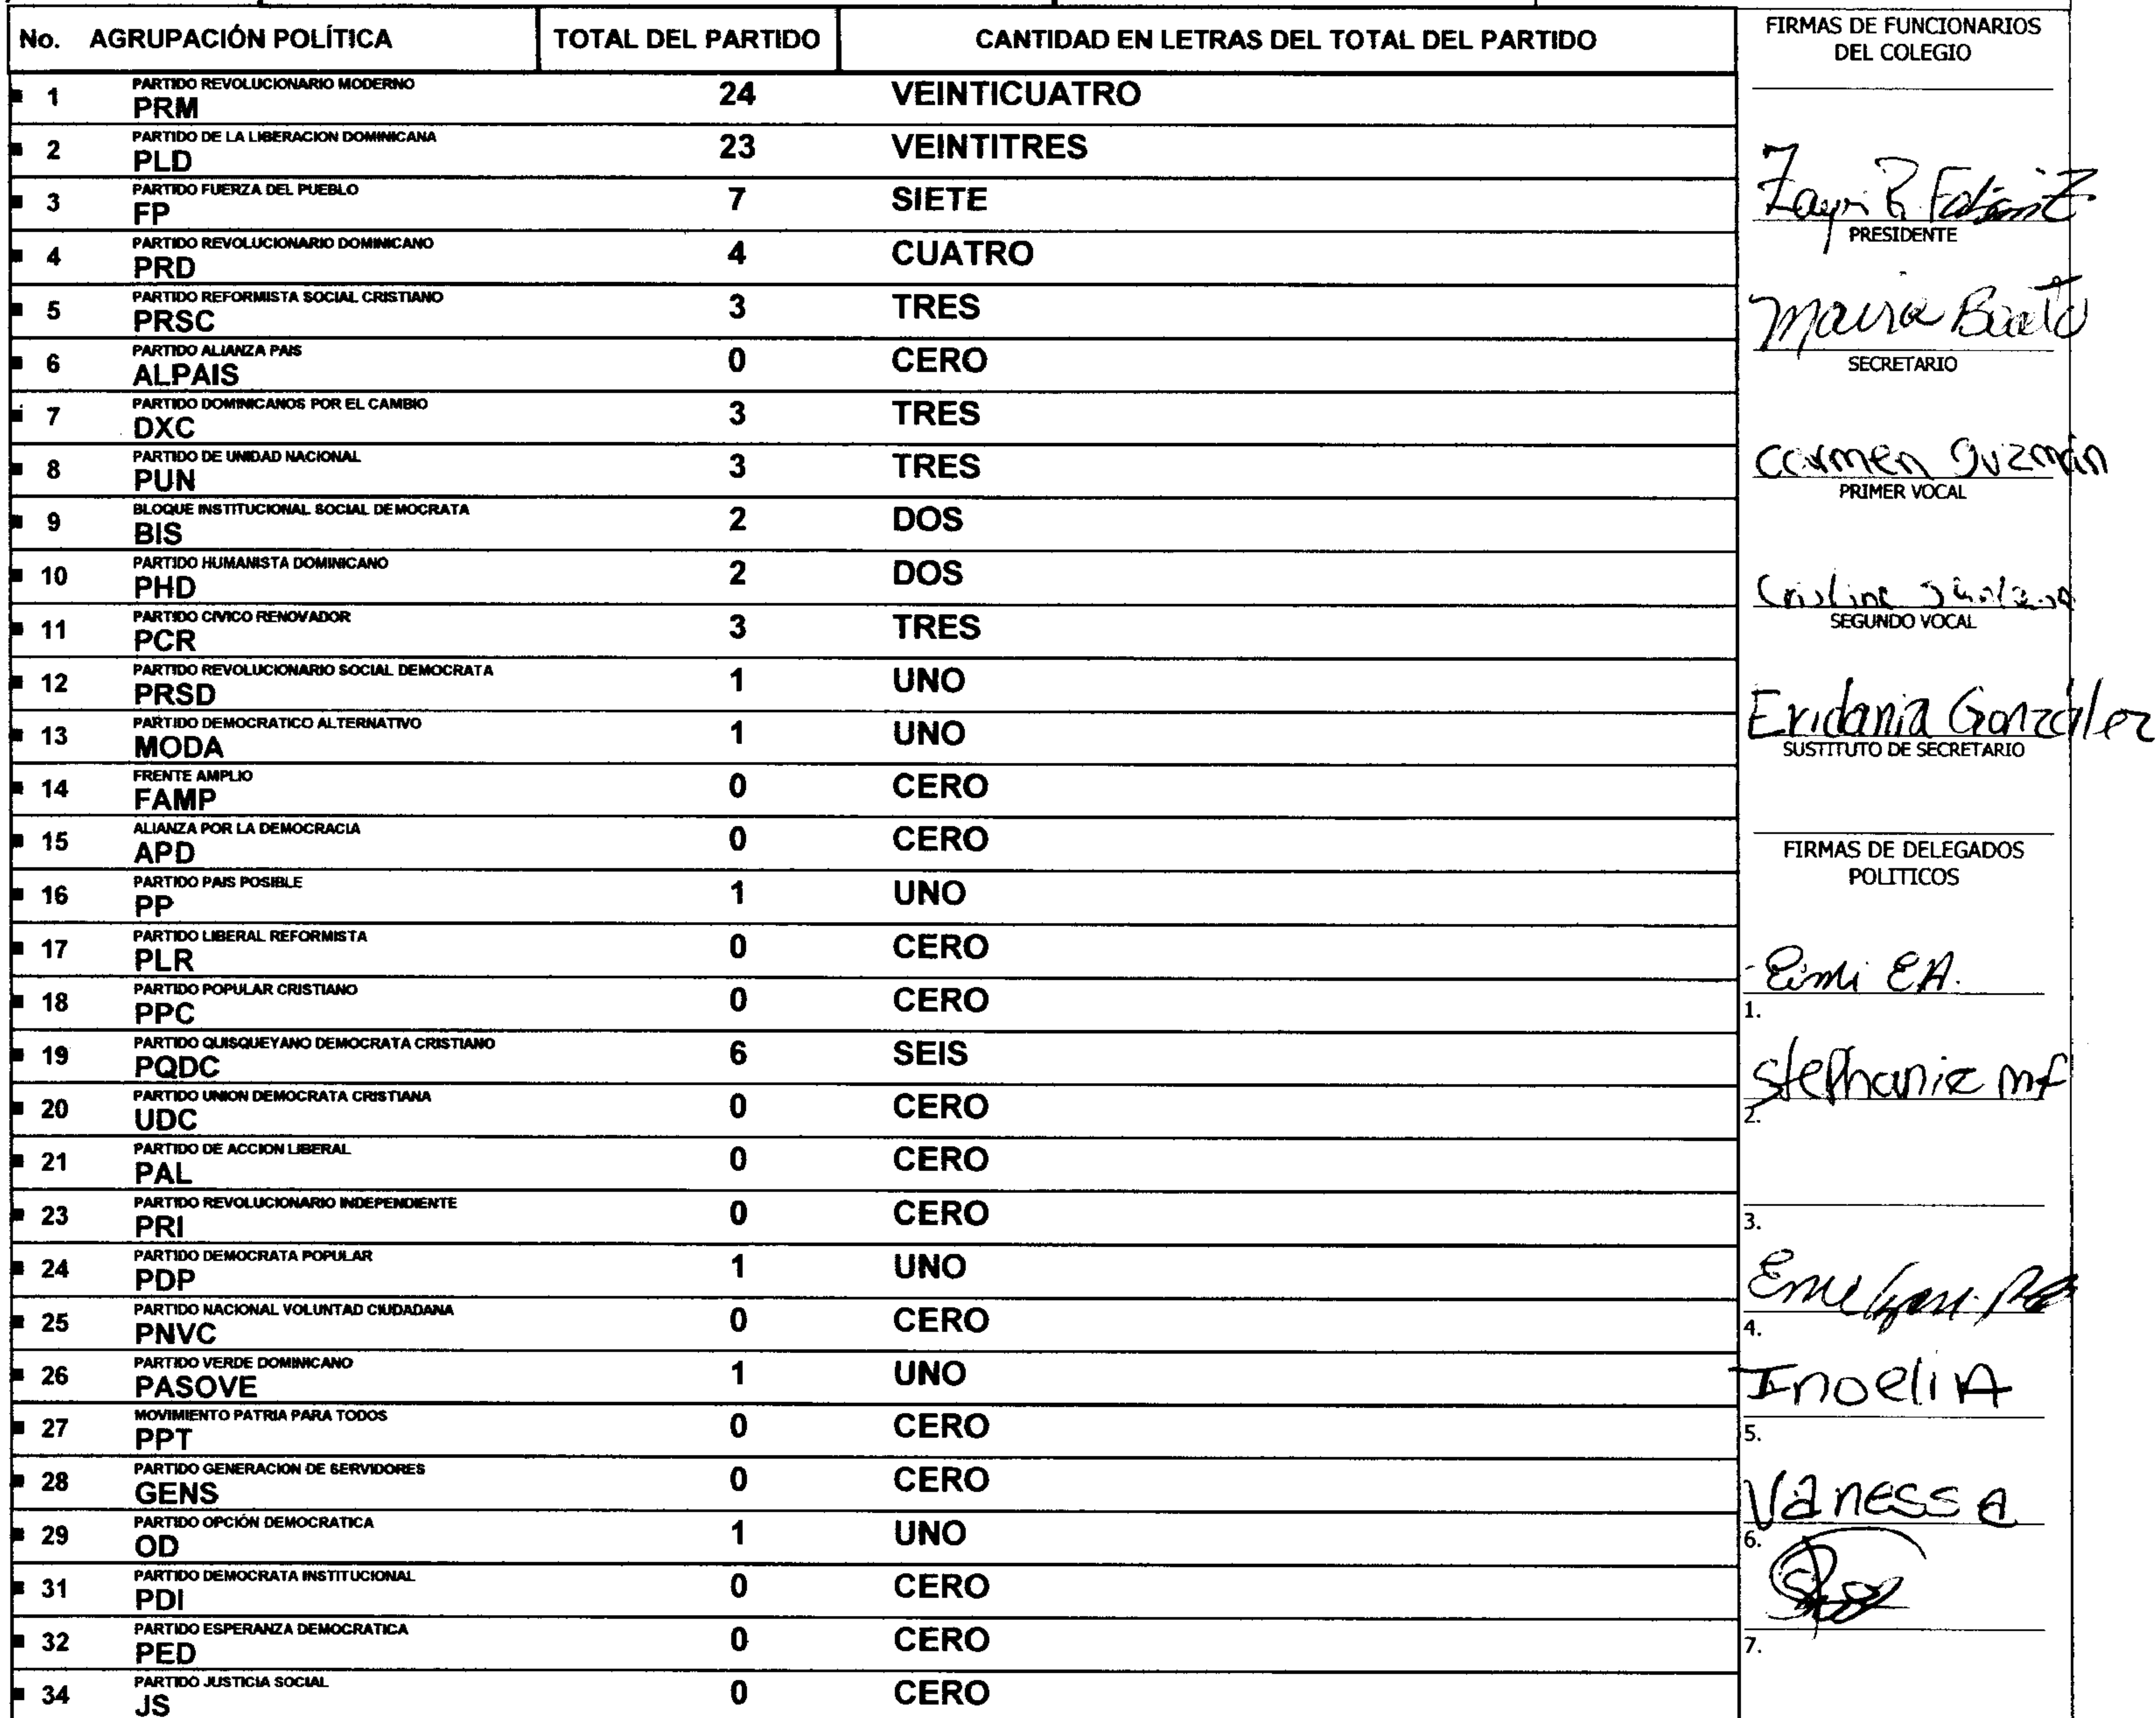 No. AGRUPACIÓN POLÍTICA TOTAL DEL PARTIDO CANTIDAD EN LETRAS DEL TOTAL DEL PARTIDO
PARTIDO REVOLUCIONARIO MODERNO
1 PRM 24 VEINTICUATRO
PARTIDO DE LA LIBERACION DOMINICANA
2 PLD 23 VEINTITRES
PARTIDO FUERZA DEL PUEBLO
3 FP 7 SIETE
PARTIDO REVOLUCIONARIO DOMINICANO
4 PRD 4 CUATRO
PARTIDO REFORMISTA SOCIAL CRISTIANO
5 PRSC 3 TRES
PARTIDO ALIANZA PAIS
6 ALPAIS 0 CERO
PARTIDO DOMINICANOS POR EL CAMBIO
7 DXC 3 TRES
PARTIDO DE UNIDAD NACIONAL
8 PUN 3 TRES
BLOQUE INSTITUCIONAL SOCIAL DEMOCRATA
9 BIS 2 DOS
PARTIDO HUMANISTA DOMINICANO
10 PHD 2 DOS
PARTIDO CIVICO RENOVADOR
11 PCR 3 TRES
PARTIDO REVOLUCIONARIO SOCIAL DEMOCRATA
12 PRSD 1 UNO
PARTIDO DEMOCRATICO ALTERNATIVO
13 MODA 1 UNO
FRENTE AMPLIO
14 FAMP 0 CERO
ALIANZA POR LA DEMOCRACIA
15 APD 0 CERO
PARTIDO PAIS POSIBLE
16 PP 1 UNO
PARTIDO LIBERAL REFORMISTA
17 PLR 0 CERO
PARTIDO POPULAR CRISTIANO
18 PPC 0 CERO
PARTIDO QUISQUEYANO DEMOCRATA CRISTIANO
19 PQDC 6 SEIS
PARTIDO UNION DEMOCRATA CRISTIANA
20 UDC 0 CERO
PARTIDO DE ACCION LIBERAL
21 PAL 0 CERO
PARTIDO REVOLUCIONARIO INDEPENDIENTE
23 PRI 0 CERO
PARTIDO DEMOCRATA POPULAR
24 PDP 1 UNO
PARTIDO NACIONAL VOLUNTAD CIUDADANA
25 PNVC 0 CERO
PARTIDO VERDE DOMINICANO
26 PASOVE 1 UNO
MOVIMIENTO PATRIA PARA TODOS
27 PPT 0 CERO
PARTIDO GENERACION DE SERVIDORES
28 GENS 0 CERO
PARTIDO OPCIÓN DEMOCRATICA
29 OD 1 UNO
PARTIDO DEMOCRATA INSTITUCIONAL
31 PDI 0 CERO
PARTIDO ESPERANZA DEMOCRATICA
32 PED 0 CERO
PARTIDO JUSTICIA SOCIAL
34 JS 0 CERO
FIRMAS DE FUNCIONARIOS
DEL COLEGIO
PRESIDENTE
SECRETARIO
Carmen Guzmán
PRIMER VOCAL
SEGUNDO VOCAL
Eridania González
SUSTITUTO DE SECRETARIO
FIRMAS DE DELEGADOS
POLITICOS
Eimi EA.
1.
Stephanie mf
2.
3.
4.
InoeliA
5.
Vanessa
6.
7.